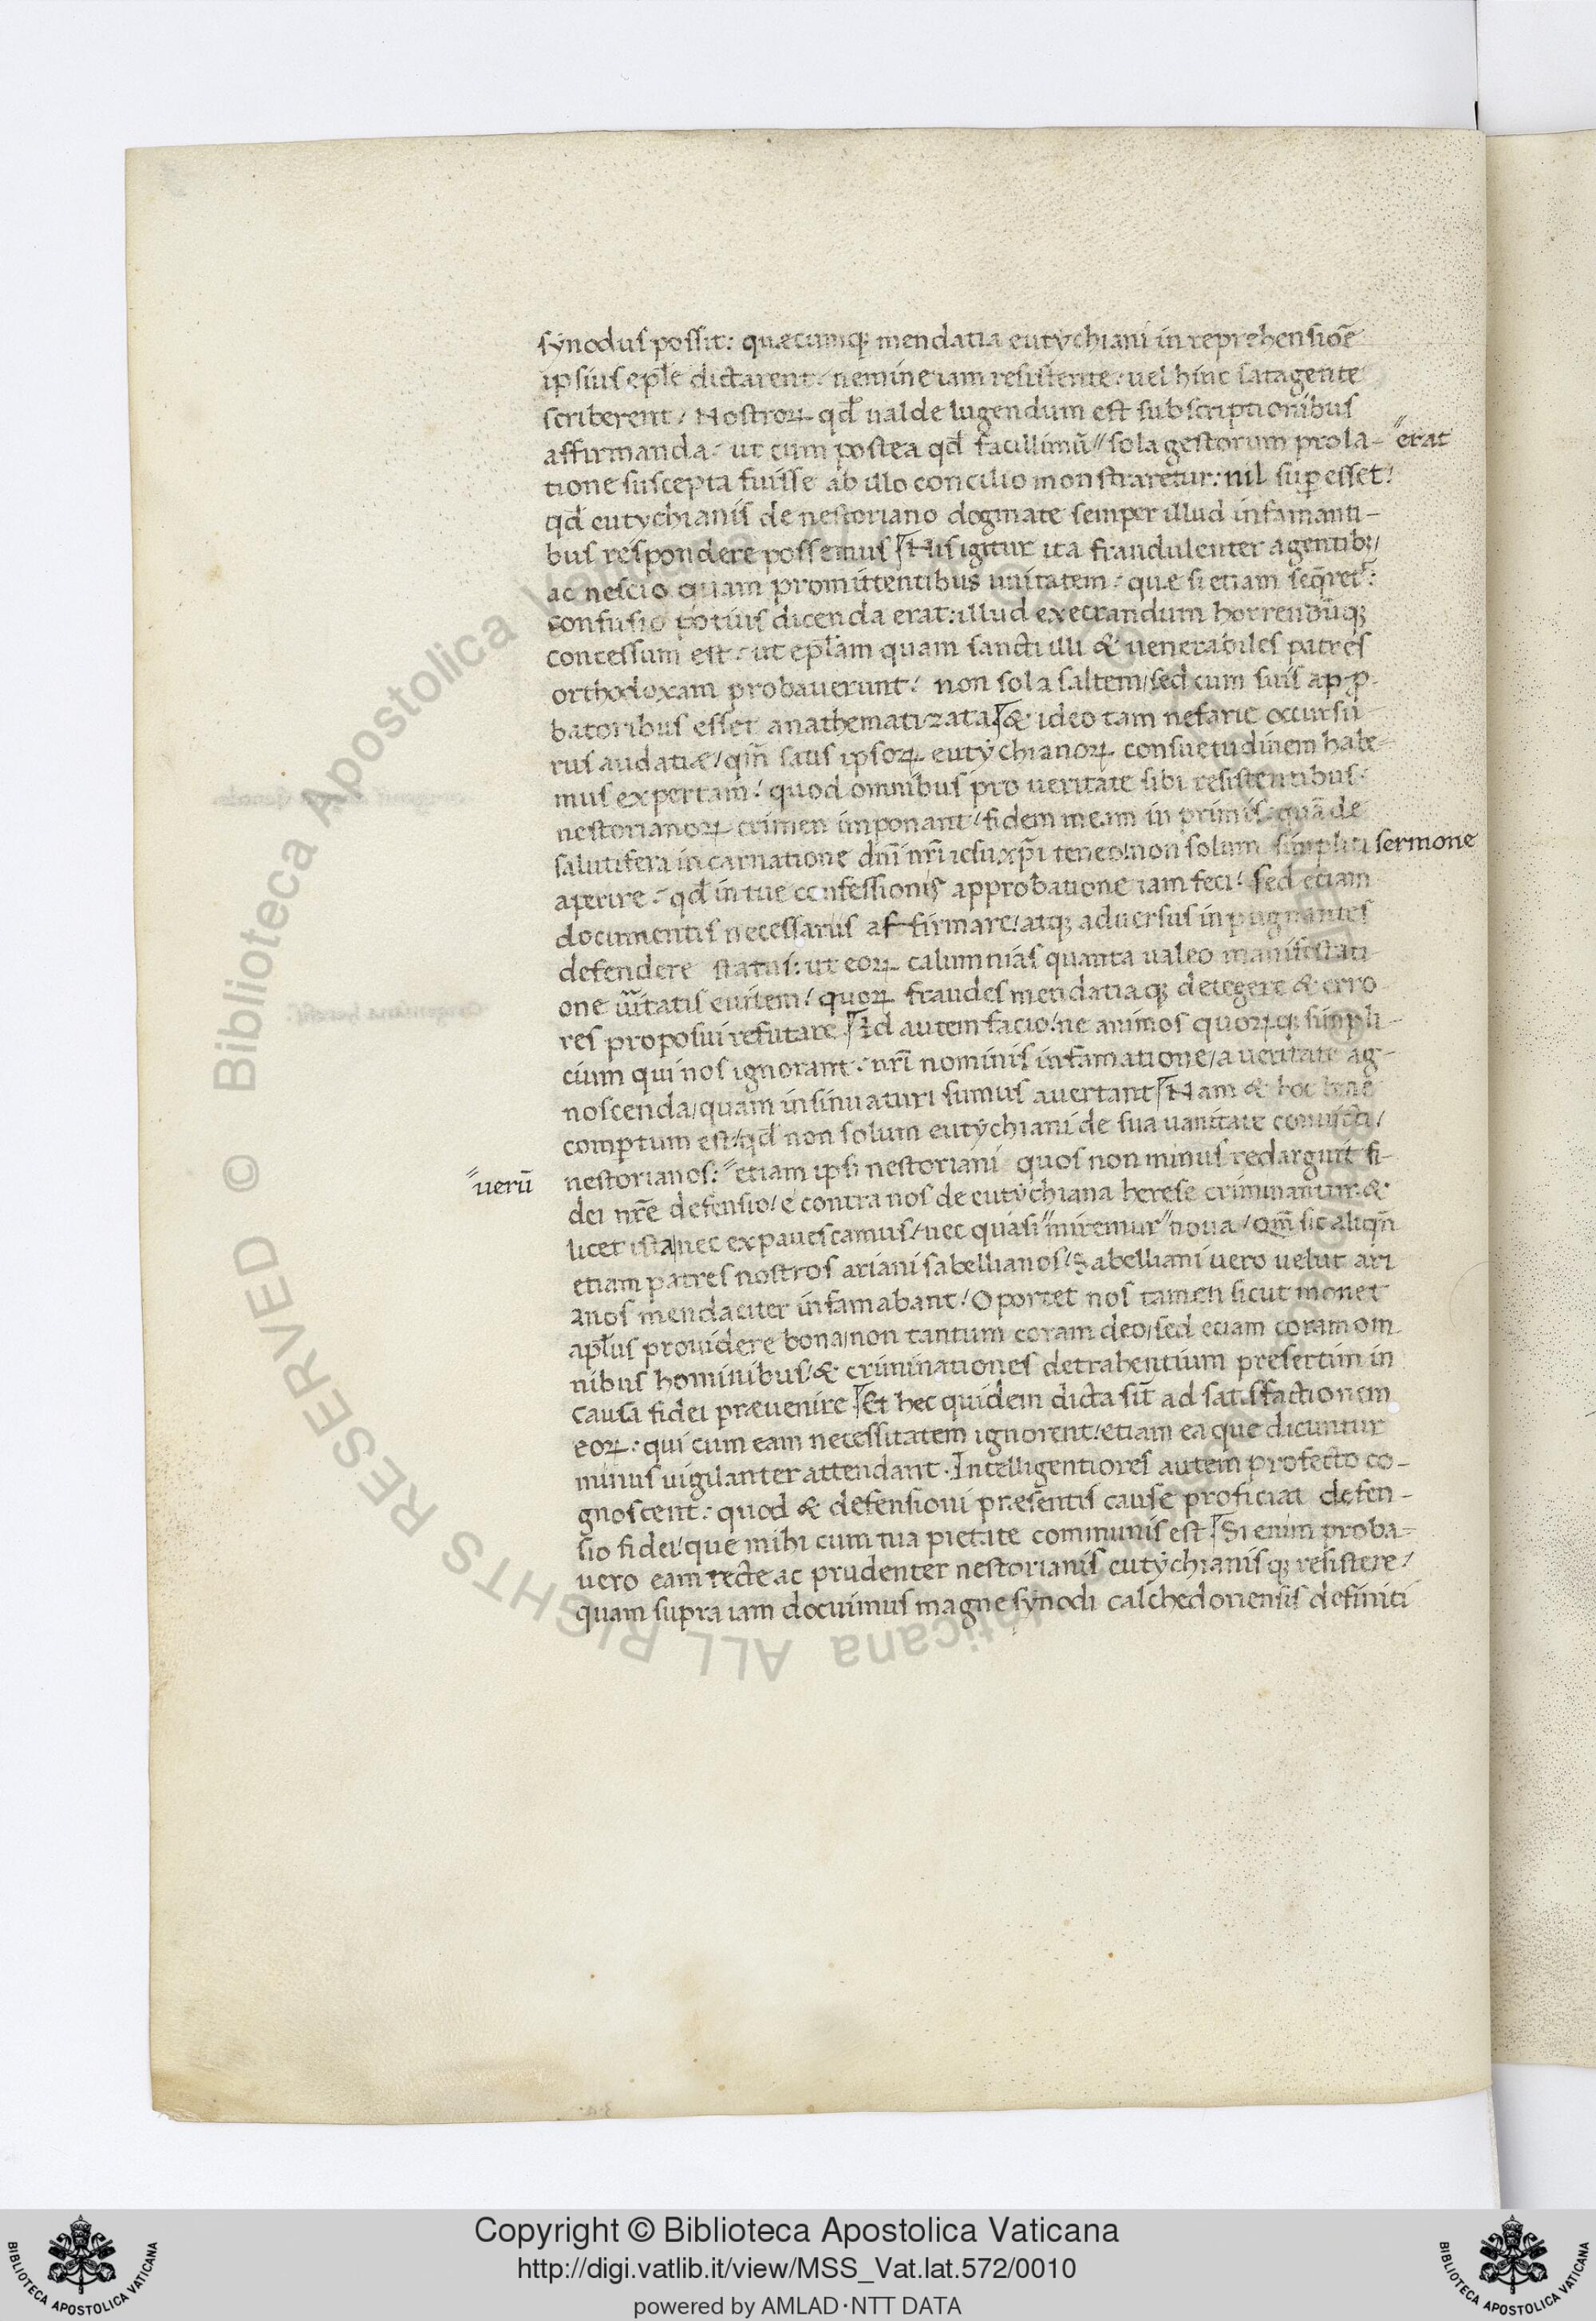 synodus possit: quæcumq; mendatia eutychiani in reprehensiõe
ipsius eple dictarent: nemine iam resistente: uel hinc satagente
scriberent/ Nostroꝝ qd ualde lugendum est subscriptionibus
affirmanda: ut cum postea qd facillimũ sola gestorum prola- erat
tione suscepta fuisse ab illo concilio monstraretur: nil supesset:
qd eutychianis de nestoriano dogmate semper illud infamanti-
bus respondere possemus Hisigitur ita fraudulenter agentib;/
ac nescio quam promittentibus unitatem: quæ si etiam seq̃ret:
confusio potius dicenda erat: illud execrandum horrendũq;
concessum est: ut eplam quam sancti illi & uenerabiles patres
orthodoxam probauerunt: non sola saltem/ sed cum suis app-
batoribus esset anathematizata & ideo tam nefarie occursu-
rus audatiæ/ qm̃ satis ipsoꝝ eutychianoꝝ consuetudinem habe-
mus expertam: quod omnibus pro ueritate sibi resistentibus
nestorianoꝝ crimen imponant/ fidem meam in primis quã de
salutifera incarnatione dñi nr̃i iesu xp̃i teneo: non solum simplici sermone
aperire: qd in tue confessionis approbatione iam feci: Sed etiam
documentis necessariis affirmare/ atq; aduersus inpugnantes
defendere statui: ut eoꝝ calumnias quanta ualeo manifestati-
one uĩtatis euitem/ quoꝝ fraudes mendatiaq; detegere & erro
res proposui refutare Id autem facio/ ne animos quoꝝq; simpli-
cium qui nos ignorant: nr̃i nominis infamatione/ a ueritate ag-
noscenda/ quam insinuaturi sumus auertant Nam & hoc bene
comptum est/ qd non solum eutychiani de sua uanitate conuicti/
uerũ nestorianos: etiam ipsi nestoriani quos non minus redarguit fi-
dei nr̃e defensio/ e contra nos de eutychiana herese criminantur: &
licet ista nec expauescamus/ nec quasi miremur noua/ Qm̃ sic aliqñ
etiam patres nostros ariani sabellianos/ Sabelliani uero uelut ari
anos mendaciter infamabant/ Oportet nos tamen sicut monet
aplus prouidere bona/ non tantum coram deo/ sed etiam coram om
nibus hominibus/ & criminationes detrahentium presertim in
causa fidei præuenire Et hec quidem dicta sũt ad satisfactionem
eoꝝ: qui cum eam necessitatem ignorent/ etiam ea que dicuntur
minus uigilanter attendant. Intelligentiores autem profecto co-
gnoscent: quod & defensioni præsentis cause proficiat defen-
sio fidei: que mihi cum tua pietate communis est Si enim proba-
uero eam recte ac prudenter nestorianis eutychianisq; resistere/
quam supra iam docuimus magne synodi calchedonensis definiti
Copyright © Biblioteca Apostolica Vaticana
http://digi.vatlib.it/view/MSS_Vat.lat.572/0010
powered by AMLAD·NTT DATA